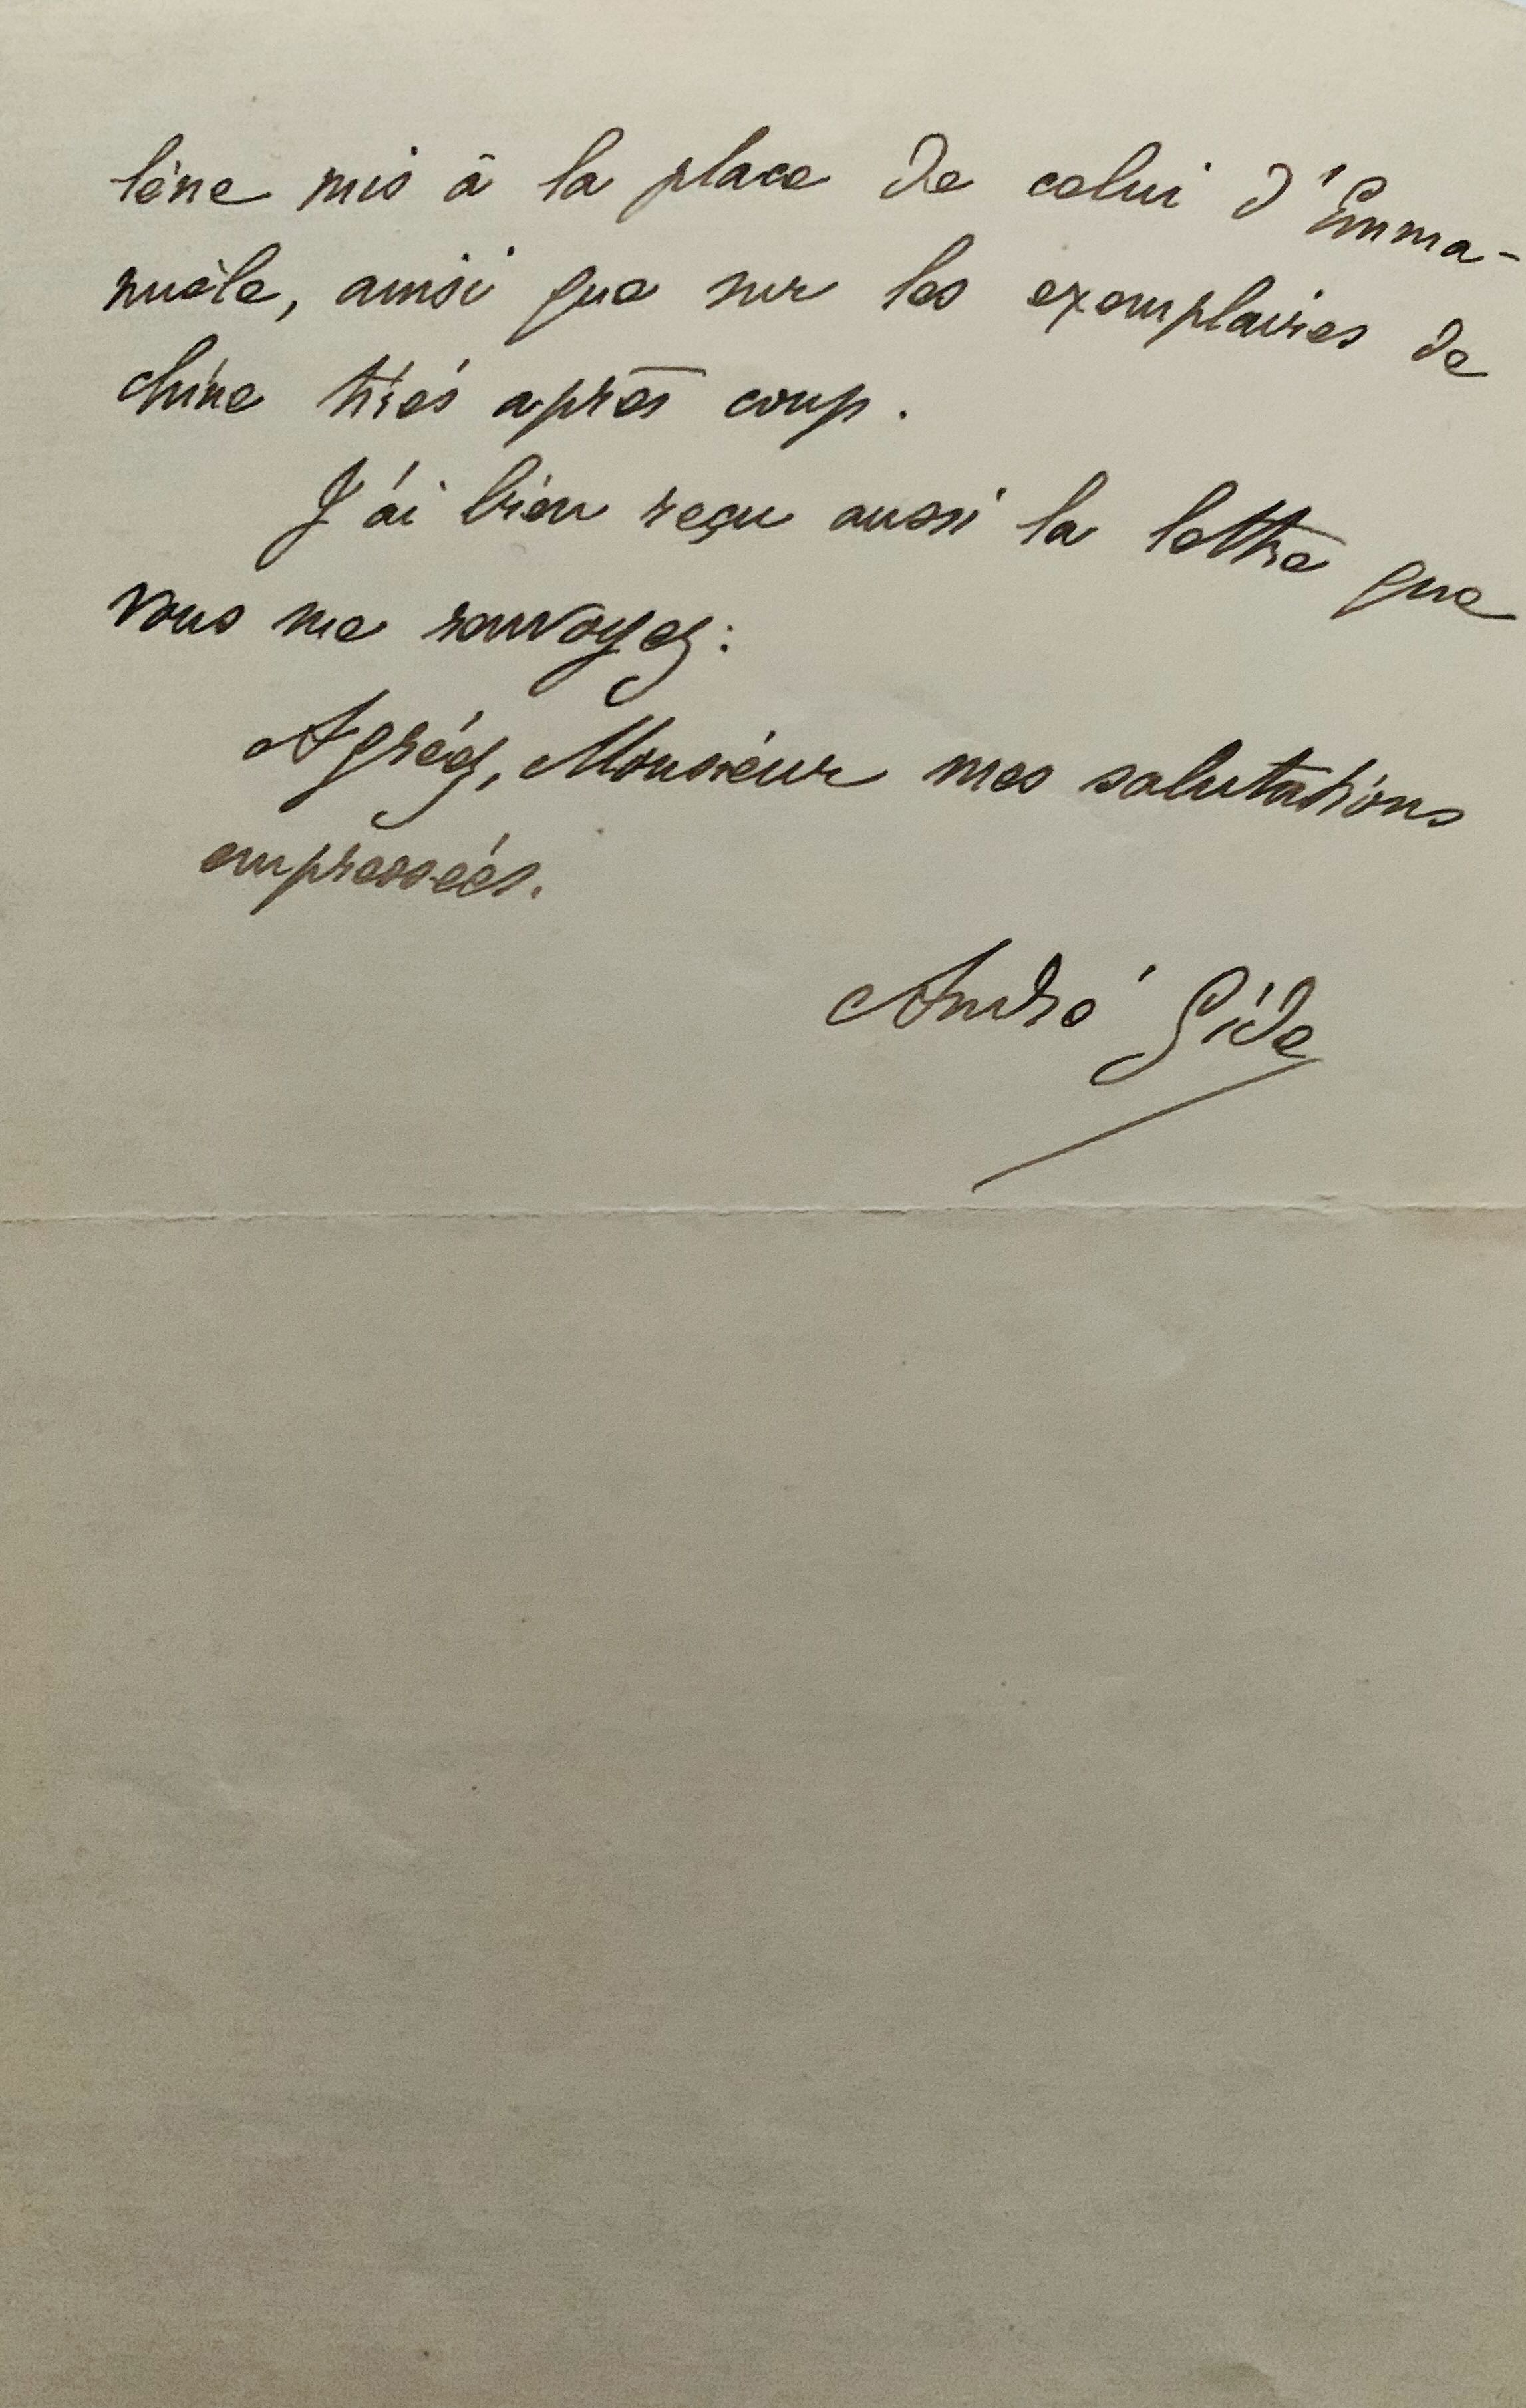 lène mis à la place de celui d'Emma-
nuèle, ainsi que sur les exemplaires de
chine tirés après coup.
J'ai bien reçu aussi la lettre que
vous me renvoyez :
Agréez, Monsieur mes salutations
empressées.
André Gide